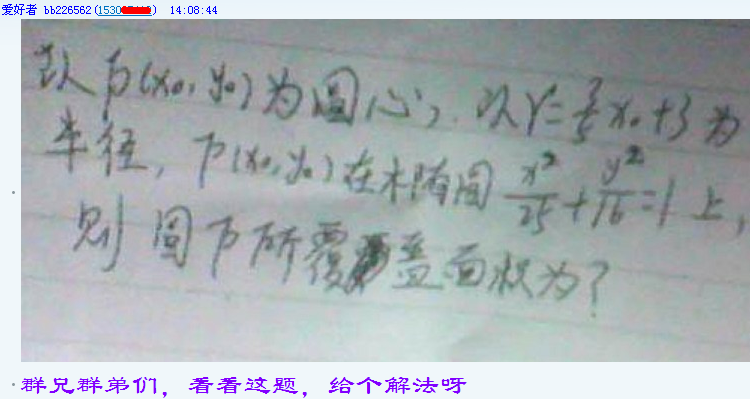 爱好者 bb226562(1530 ) 14:08:44
以P(x₀, y₀)为圆心, 以r=3/5x₀+3为
半径, P(x₀, y₀)在椭圆x²/25+y²/16=1上,
则圆P所覆盖面积为?
群兄群弟们, 看看这题, 给个解法呀